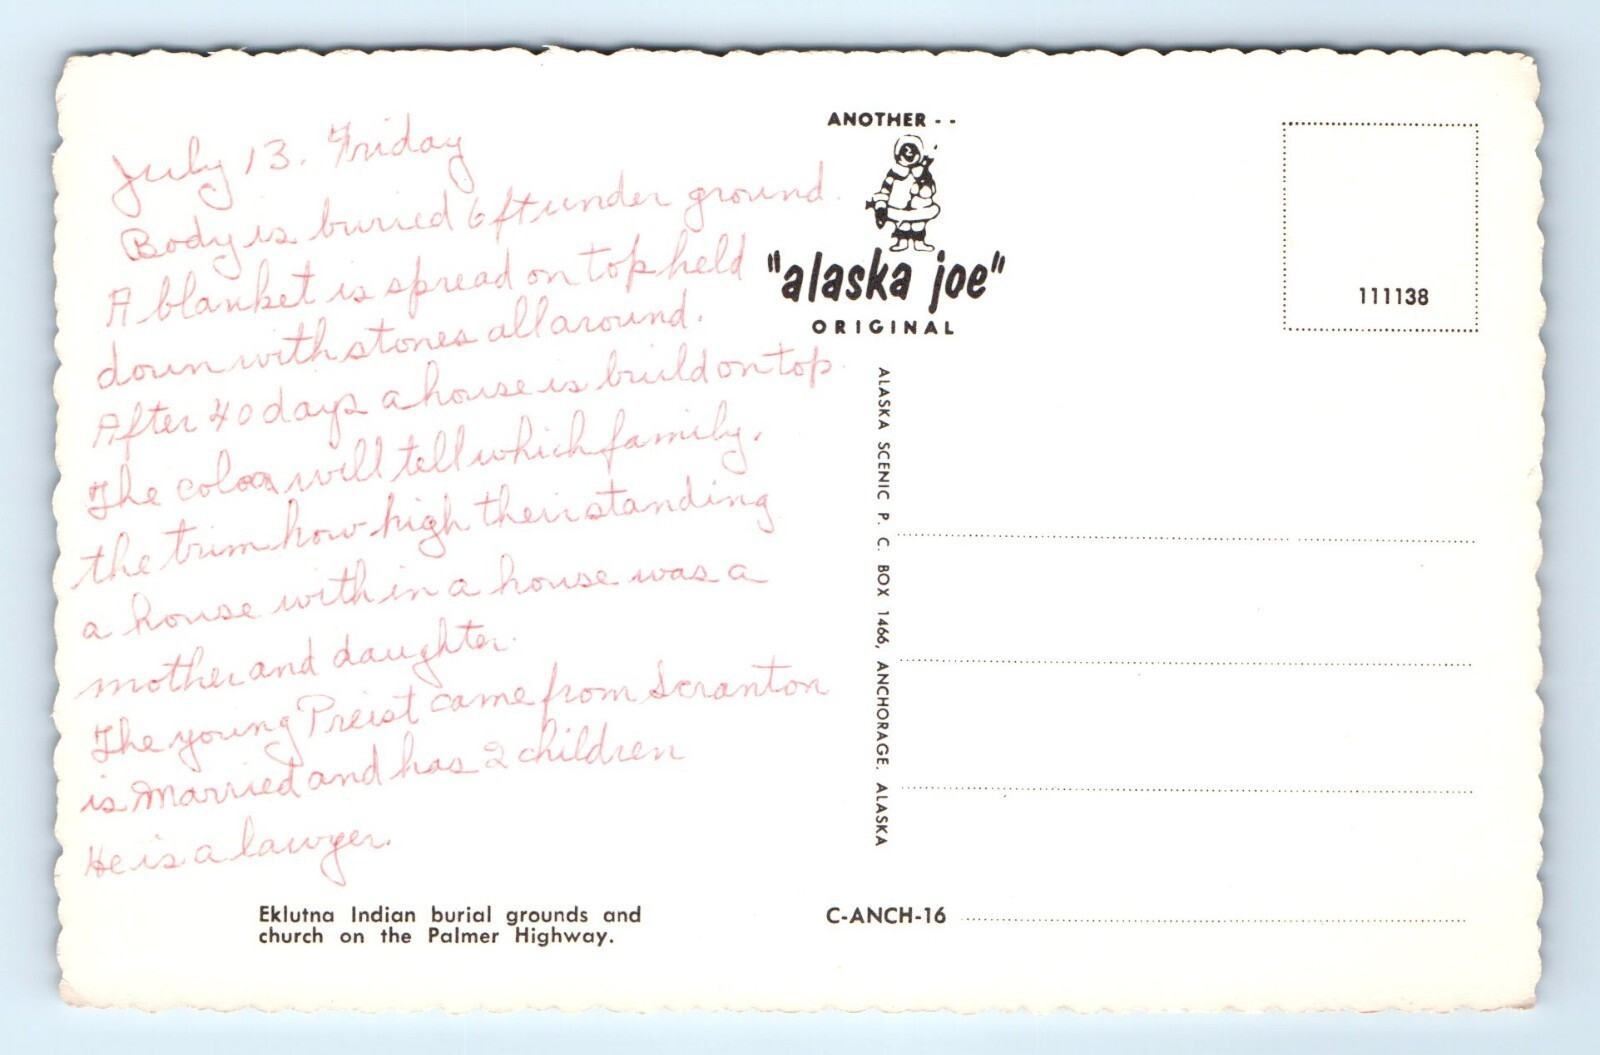 July 13. Friday
Body is buried 6 ft under ground.
A blanket is spread on top held
down with stones all around.
After 40 days a house is build on top.
The color will tell which family.
the trim how high their standing
a house within a house was a
mother and daughter.
The young Preist came from Scranton
is Married and has 2 children
He is a lawyer.
Eklutna Indian burial grounds and
church on the Palmer Highway.
ANOTHER - -
"alaska joe"
ORIGINAL
111138
ALASKA SCENIC P. C. BOX 1466, ANCHORAGE, ALASKA
C-ANCH-16